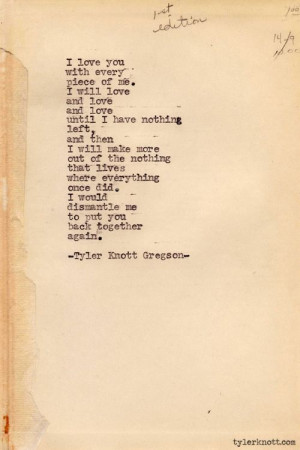 1st
edition
I love you
with every
piece of me.
I will love
and love
and love
until I have nothing
left,
and then
I will make more
out of the nothing
that lives
where everything
once did.
I would
dismantle me
to put you
back together
again.
-Tyler Knott Gregson-
tylerknott.com